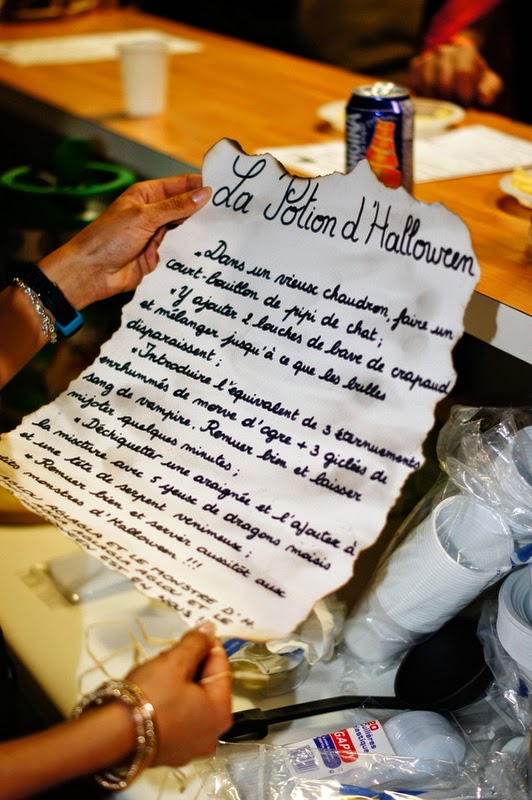 La Potion d'Halloween
• Dans un vieux chaudron, faire un
court-bouillon de pipi de chat ;
• Y ajouter 2 louches de bave de crapaud
et mélanger jusqu'à ce que les bulles
disparaissent ;
• Introduire l'équivalent de 3 éternuements
enrhummés de morve d'ogre + 3 giclées de
sang de vampire. Remuer bien et laisser
mijoter quelques minutes ;
• Déchiquetter une araignée et l'ajouter à
la mixture avec 5 yeux de dragons moisis
et une tête de serpent venimeux ;
• Remuer bien et servir aussitôt aux
monstres d'Halloween !!!
ET LE MONSTRE D'H
ET LE
20
cuillères
plastique
GAPPY